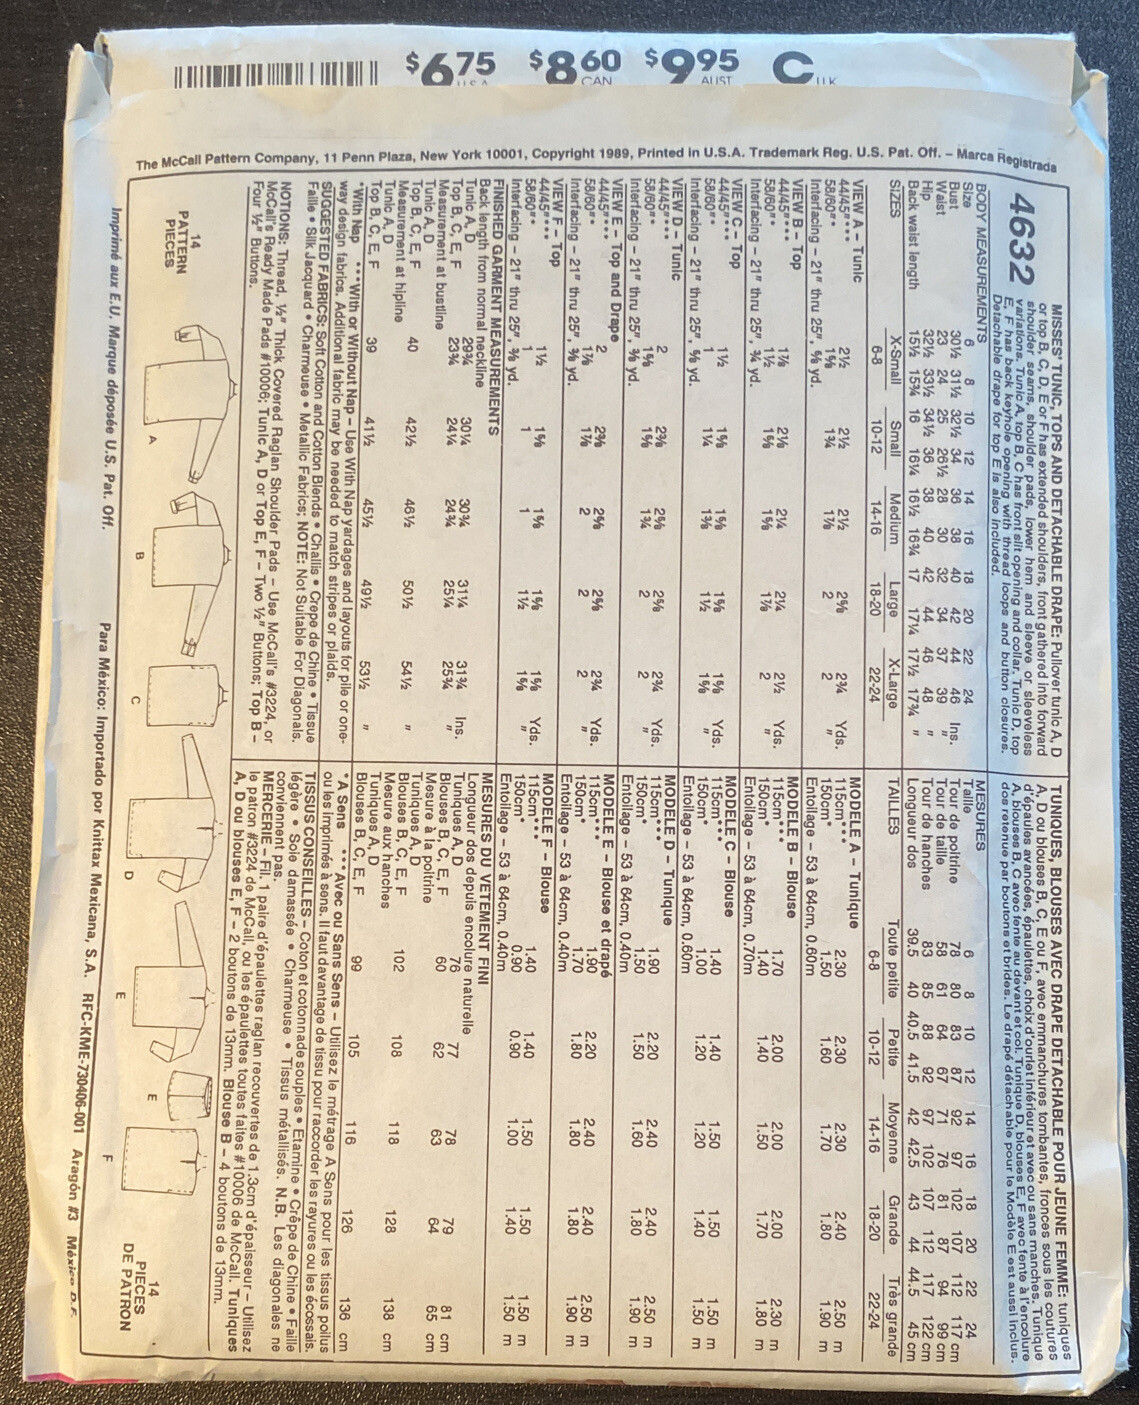 $6 75 U.S.A $8 60 CAN $9 95 AUST C U.K
The McCall Pattern Company, 11 Penn Plaza, New York 10001, Copyright 1989, Printed in U.S.A. Trademark Reg. U.S. Pat. Off. – Marca Registrada
4632
MISSES' TUNIC, TOPS AND DETACHABLE DRAPE: Pullover tunic A, D
or top B, C, D, E or F has extended shoulders, front gathered into forward
shoulder seams, shoulder pads, lower hem and sleeve or sleeveless
variations. Tunic A, top B, C has front slit opening and collar. Tunic D, top
E, F has back keyhole opening with thread loops and button closures.
Detachable drape for top E is also included.
BODY MEASUREMENTS
Size 6 8 10 12 14 16 18 20 22 24
Bust 30½ 31½ 32½ 34 36 38 40 42 44 46 Ins.
Waist 23 24 25 26½ 28 30 32 34 37 39 "
Hip 32½ 33½ 34½ 36 38 40 42 44 46 48 "
Back waist length 15½ 15¾ 16 16¼ 16½ 16¾ 17 17¼ 17½ 17¾ "
SIZES X-Small 6-8 Small 10-12 Medium 14-16 Large 18-20 X-Large 22-24
VIEW A – Tunic
44/45"*** 2½ 2½ 2½ 2⅝ 2¾ Yds.
58/60"* 1⅝ 1¾ 1⅞ 2 2 "
Interfacing – 21" thru 25", ⅝ yd.
VIEW B – Top
44/45"*** 1⅞ 2⅛ 2¼ 2¼ 2½ Yds.
58/60"* 1½ 1⅝ 1⅝ 1⅞ 2 "
Interfacing – 21" thru 25", ¾ yd.
VIEW C – Top
44/45"*** 1½ 1⅝ 1⅝ 1⅝ 1⅝ Yds.
58/60"* 1 1¼ 1⅜ 1½ 1⅝ "
Interfacing – 21" thru 25", ⅝ yd.
VIEW D – Tunic
44/45"*** 2 2⅜ 2⅝ 2⅝ 2¾ Yds.
58/60"* 1⅝ 1⅝ 1¾ 2 2 "
Interfacing – 21" thru 25", ⅜ yd.
VIEW E – Top and Drape
44/45"*** 2 2⅜ 2⅝ 2⅝ 2¾ Yds.
58/60"* 1⅞ 1⅞ 2 2 2 "
Interfacing – 21" thru 25", ⅜ yd.
VIEW F – Top
44/45"*** 1½ 1⅝ 1⅝ 1⅝ 1⅝ Yds.
58/60"* 1 1 1 1½ 1⅝ "
Interfacing – 21" thru 25", ⅜ yd.
FINISHED GARMENT MEASUREMENTS
Back length from normal neckline
Tunic A, D 29¾ 30¼ 30¾ 31¼ 31¾ Ins.
Top B, C, E, F 23¾ 24¼ 24¾ 25¼ 25¾ "
Measurement at bustline
Tunic A, D
Top B, C, E, F 40 42½ 46½ 50½ 54½ "
Measurement at hipline
Tunic A, D
Top B, C, E, F 39 41½ 45½ 49½ 53½ "
*With Nap ***With or Without Nap – Use With Nap yardages and layouts for pile or one-
way design fabrics. Additional fabric may be needed to match stripes or plaids.
SUGGESTED FABRICS: Soft Cotton and Cotton Blends • Challis • Crepe de Chine • Tissue
Faille • Silk Jacquard • Charmeuse • Metallic Fabrics; NOTE: Not Suitable For Diagonals.
NOTIONS: Thread, ½" Thick Covered Raglan Shoulder Pads – Use McCall's #3224, or
McCall's Ready Made Pads #10006; Tunic A, D or Top E, F – Two ½" Buttons; Top B –
Four ½" Buttons.
TUNIQUES, BLOUSES AVEC DRAPE DETACHABLE POUR JEUNE FEMME: tuniques
A, D ou blouses B, C, E ou F, avec emmanchures tombantes, fronces sous les coutures
d'épaules avancées, épaulettes, choix d'ourlet inférieur et avec ou sans manches. Tunique
A, blouses B, C avec fente au devant et col. Tunique D, blouses E, F avec fente à l'encolure
dos retenue par boutons et brides. Le drapé détachable pour le Modèle E est aussi inclus.
MESURES
Taille 6 8 10 12 14 16 18 20 22 24
Tour de poitrine 78 80 83 87 92 97 102 107 112 117 cm
Tour de taille 58 61 64 67 71 76 81 87 94 99 cm
Tour de hanches 83 85 88 92 97 102 107 112 117 122 cm
Longueur dos 39.5 40 40.5 41.5 42 42.5 43 44 44.5 45 cm
TAILLES Toute petite 6-8 Petite 10-12 Moyenne 14-16 Grande 18-20 Très grande 22-24
MODELE A – Tunique
115cm*** 2.30 2.30 2.30 2.40 2.50 m
150cm* 1.50 1.60 1.70 1.80 1.90 m
Entoilage – 53 à 64cm, 0.60m
MODELE B – Blouse
115cm*** 1.70 2.00 2.00 2.00 2.30 m
150cm* 1.40 1.40 1.50 1.70 1.80 m
Entoilage – 53 à 64cm, 0.70m
MODELE C – Blouse
115cm*** 1.40 1.40 1.50 1.50 1.50 m
150cm* 1.00 1.20 1.20 1.40 1.50 m
Entoilage – 53 à 64cm, 0.60m
MODELE D – Tunique
115cm*** 1.90 2.20 2.40 2.40 2.50 m
150cm* 1.50 1.50 1.60 1.80 1.90 m
Entoilage – 53 à 64cm, 0.40m
MODELE E – Blouse et drapé
115cm*** 1.90 2.20 2.40 2.40 2.50 m
150cm* 1.70 1.80 1.80 1.80 1.90 m
Entoilage – 53 à 64cm, 0.40m
MODELE F – Blouse
115cm*** 1.40 1.40 1.50 1.50 1.50 m
150cm* 0.90 0.90 1.00 1.40 1.50 m
Entoilage – 53 à 64cm, 0.40m
MESURES DU VETEMENT FINI
Longueur dos depuis encolure naturelle
Tuniques A, D 76 77 78 79 81 cm
Blouses B, C, E, F 60 62 63 64 65 cm
Mesure à la poitrine
Tuniques A, D
Blouses B, C, E, F 102 108 118 128 138 cm
Mesure aux hanches
Tuniques A, D
Blouses B, C, E, F 99 105 116 126 136 cm
*A Sens ***Avec ou Sans Sens – Utilisez le métrage A Sens pour les tissus poilus
ou les imprimés à sens. Il faut davantage de tissu pour raccorder les rayures ou les écossais.
TISSUS CONSEILLES – Coton et cotonnade souples • Etamine • Crêpe de Chine • Faille
légère • Soie damassée • Charmeuse • Tissus métallisés. N.B. Les diagonales ne
conviennent pas.
MERCERIE – Fil. 1 paire d'épaulettes raglan recouvertes de 1.3cm d'épaisseur – Utilisez
le patron #3224 de McCall, ou les épaulettes toutes faites #10006 de McCall. Tuniques
A, D ou blouses E, F – 2 boutons de 13mm. Blouse B – 4 boutons de 13mm.
14
PATTERN
PIECES
A
B
C
D
E
E
F
14
PIECES
DE PATRON
Imprimé aux E.U. Marque déposée U.S. Pat. Off. Para México: Importado por Knittax Mexicana, S.A. RFC-KME-730406-001 Aragón #3 México D.F.